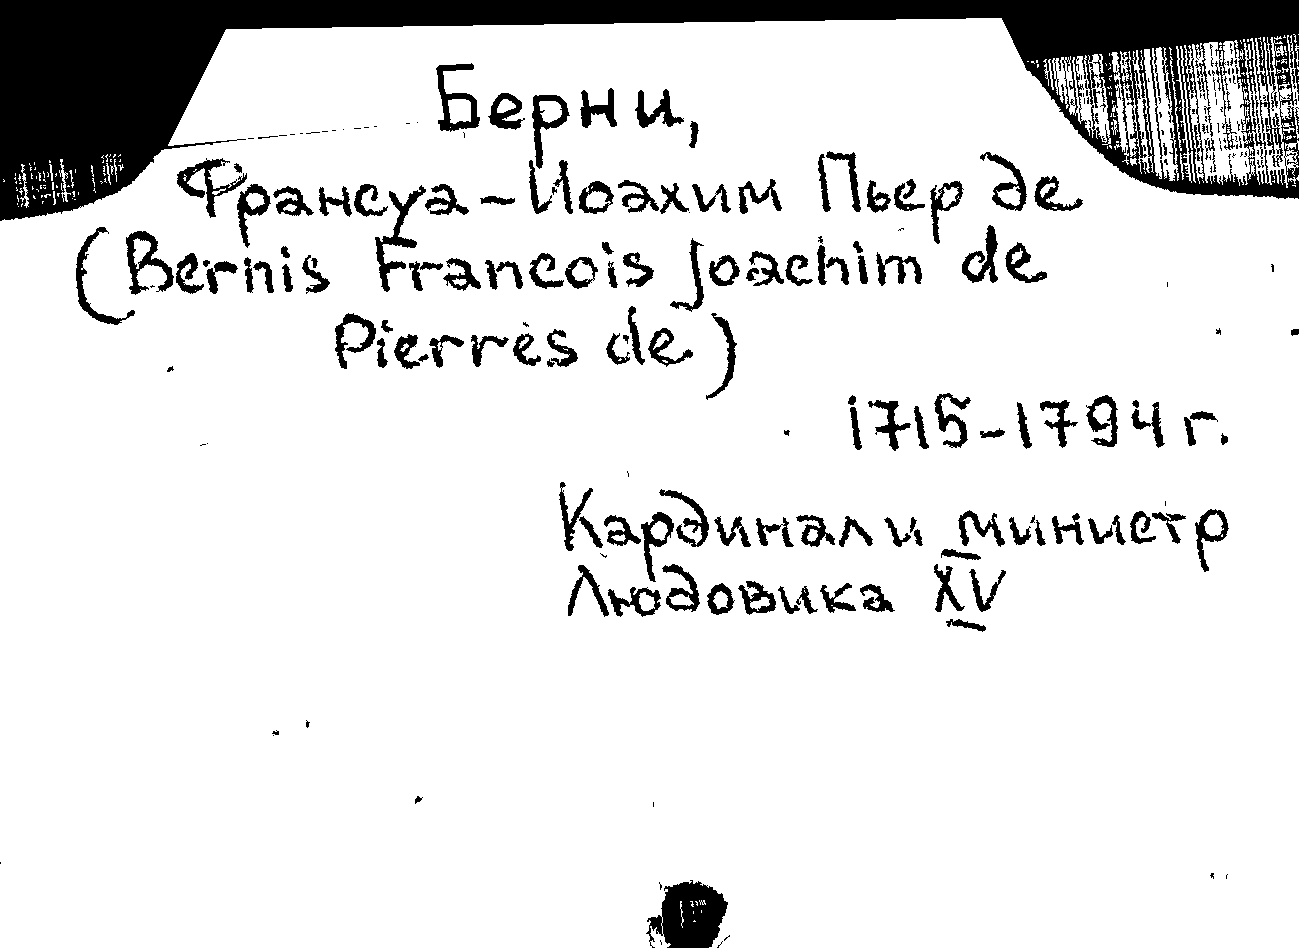 Берни,
Франсуа-Иоахим Пьер де
(Bernis Francois Joachim de
Pierres de)
1715-1794 г.
Кардинал и министр
Людовика XV